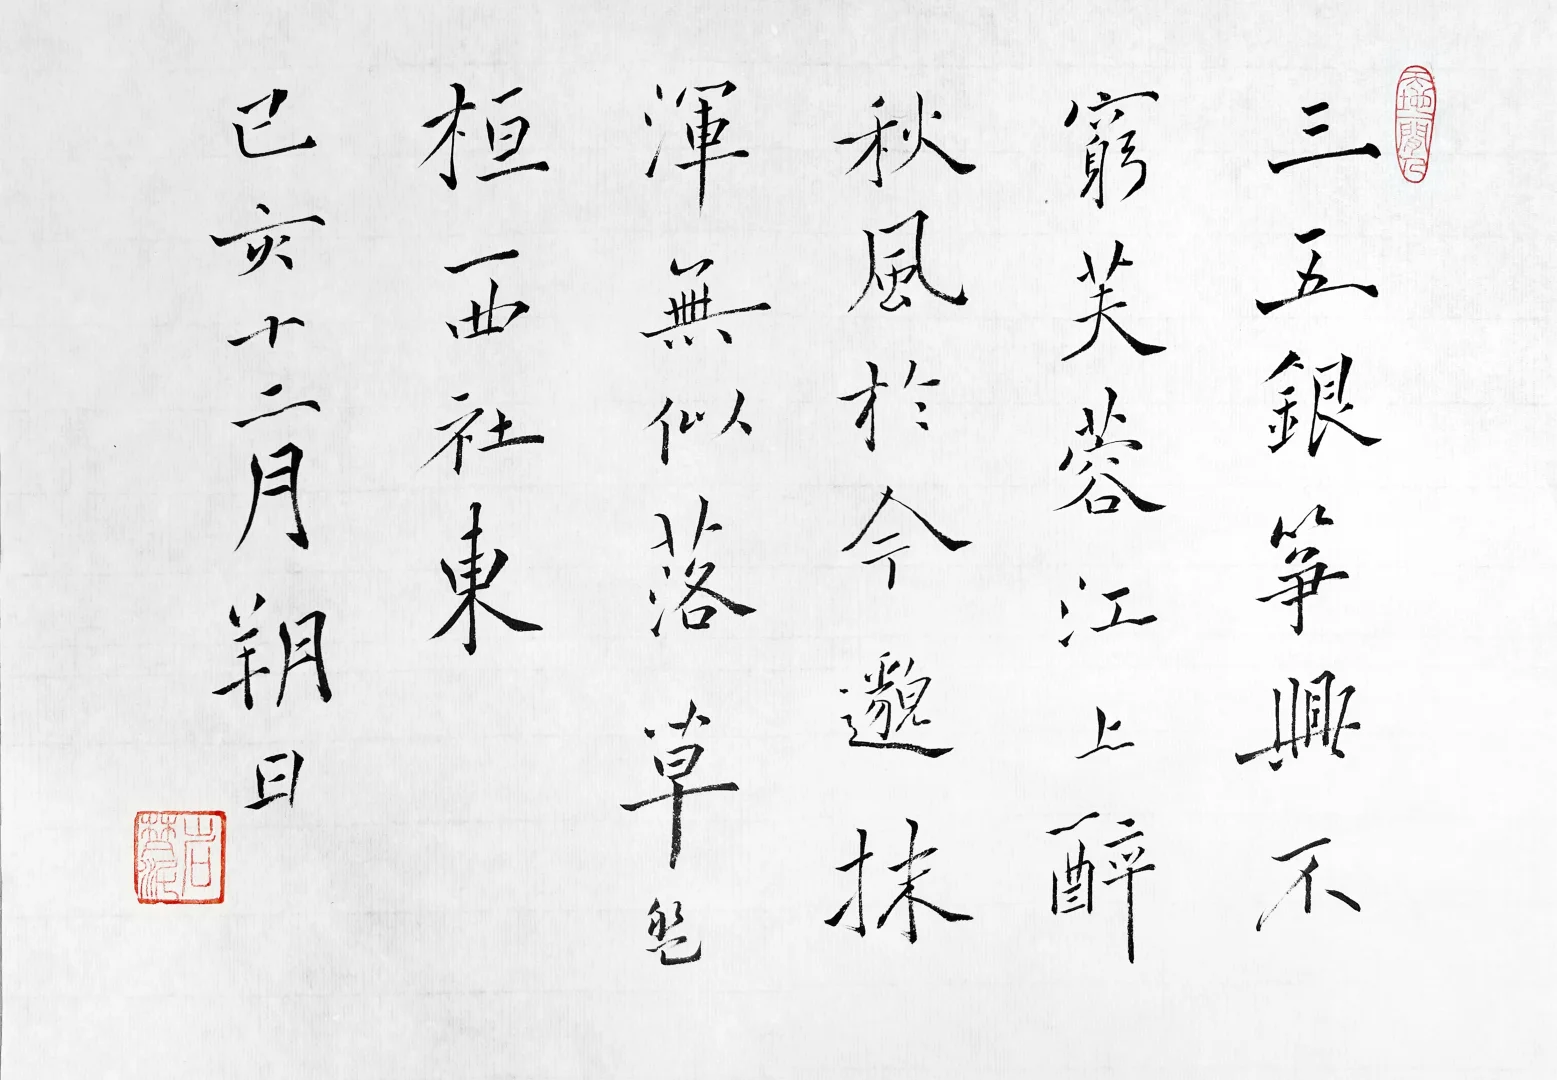 天地一閒人
三五銀箏興不
窮芙蓉江上醉
秋風於今邈抹
渾無似落草盤
桓西社東
己亥十二月朔日